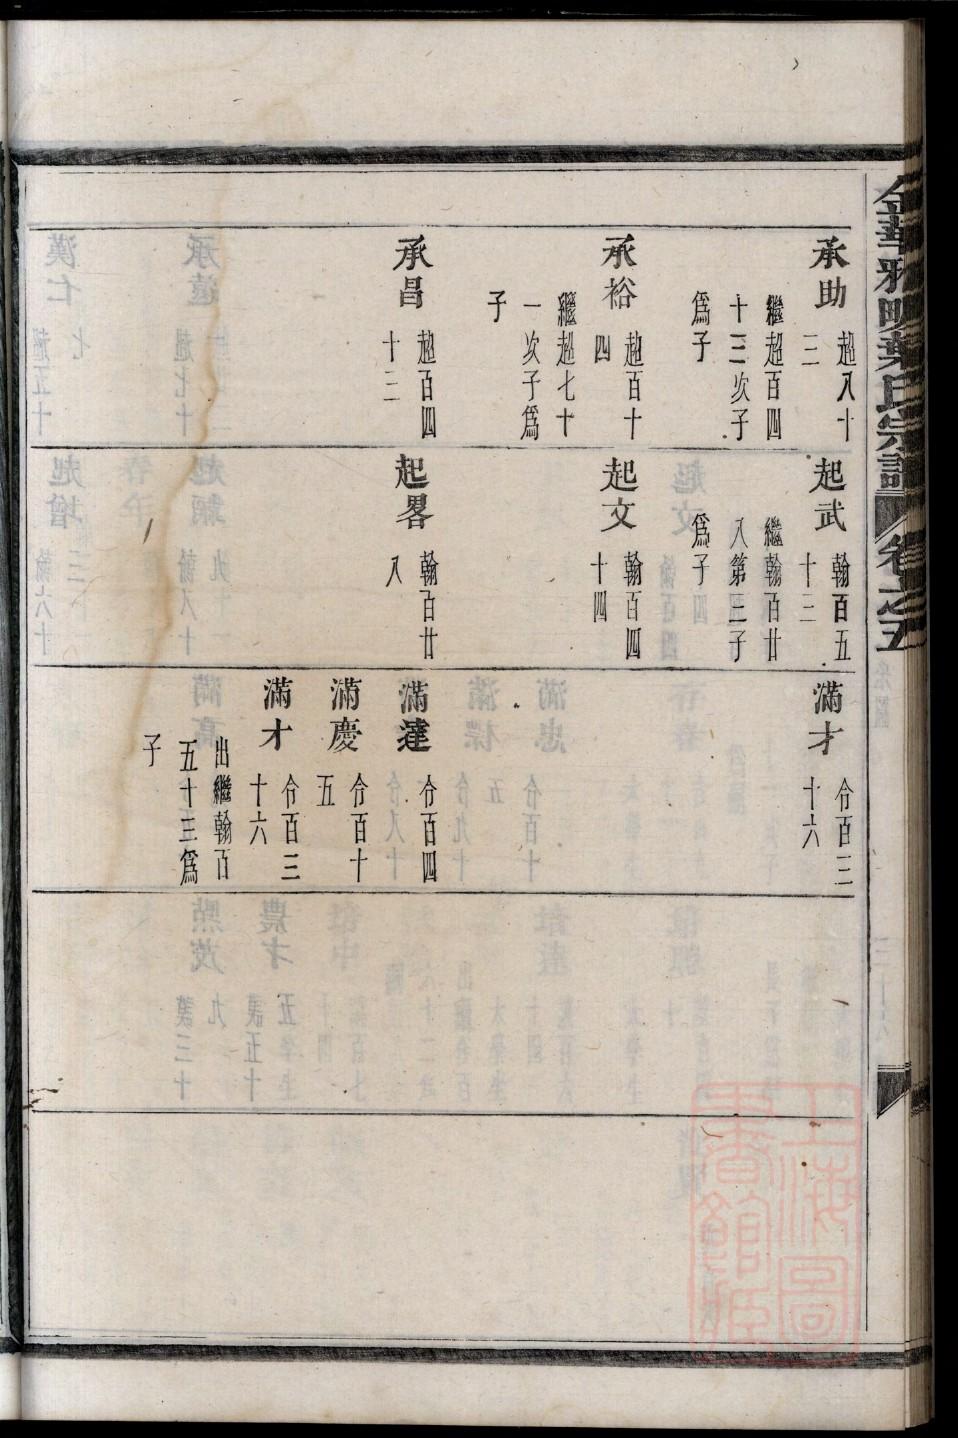 承助
超八十
三
繼超百四
十三次子
爲子
承裕
超百十
四
繼超七十
一次子爲
子
承昌
超百四
十三
起武
翰百五
十三
繼翰百廿
八第三子
爲子
起文
翰百四
十四
起畧
翰百廿
八
滿才
令百三
十六
滿達
令百四
滿慶
令百十
五
滿才
令百三
十六
出繼翰百
五十三爲
子
卷之五